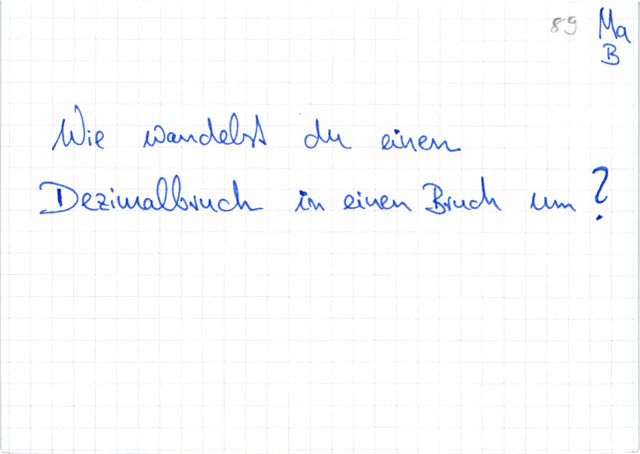 89 Ma
B
Wie wandelst du einen
Dezimalbruch in einen Bruch um?